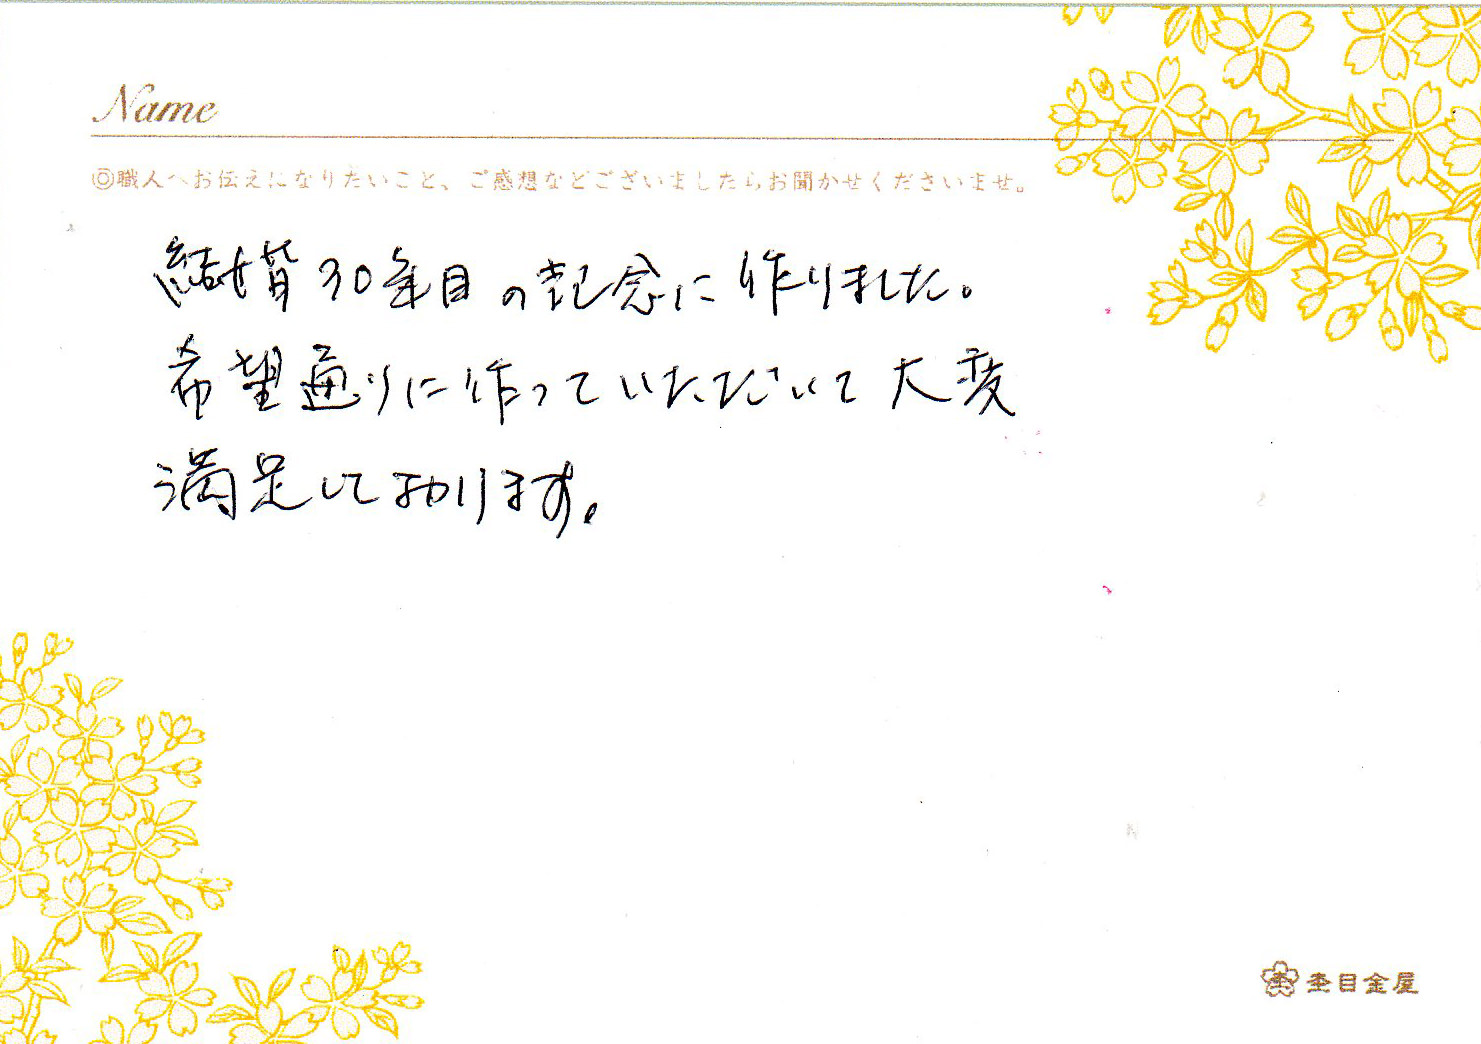 Name
◎職人へお伝えになりたいこと、ご感想などございましたらお聞かせくださいませ。
結婚30年目の記念に作りました。
希望通りに作っていただいて大変
満足しております。
杢目金屋